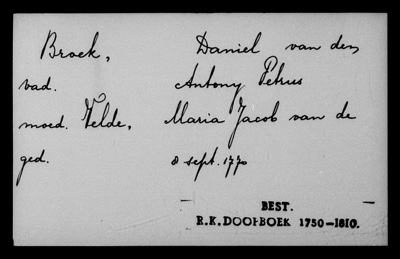 Broek, Daniel van den
vad. Antony Petrus
moed. Velde, Maria Jacob van de
ged. 8 sept. 1770
BEST.
R.K.DOOPBOEK 1750-1810.